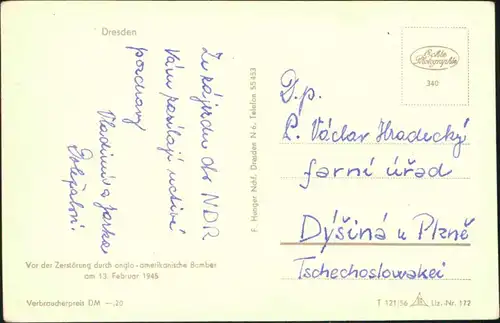 Dresden
Ze zájezdu do NDR
Vám posílají uctivé
pozdravy
Vladimír a Jarka
Doležalovi.
Vor der Zerstörung durch anglo-amerikanische Bomber
am 13. Februar 1945
Verbraucherpreis DM —.20
F. Hunger Nchf. Dresden N 6. Telefon 55453
Echte
Photographie
340
D.p.
P. Václav Hradecký
farní úřad
Dýšiná u Plzně
Tschechoslowakei
T 121/56 Liz.-Nr. 172